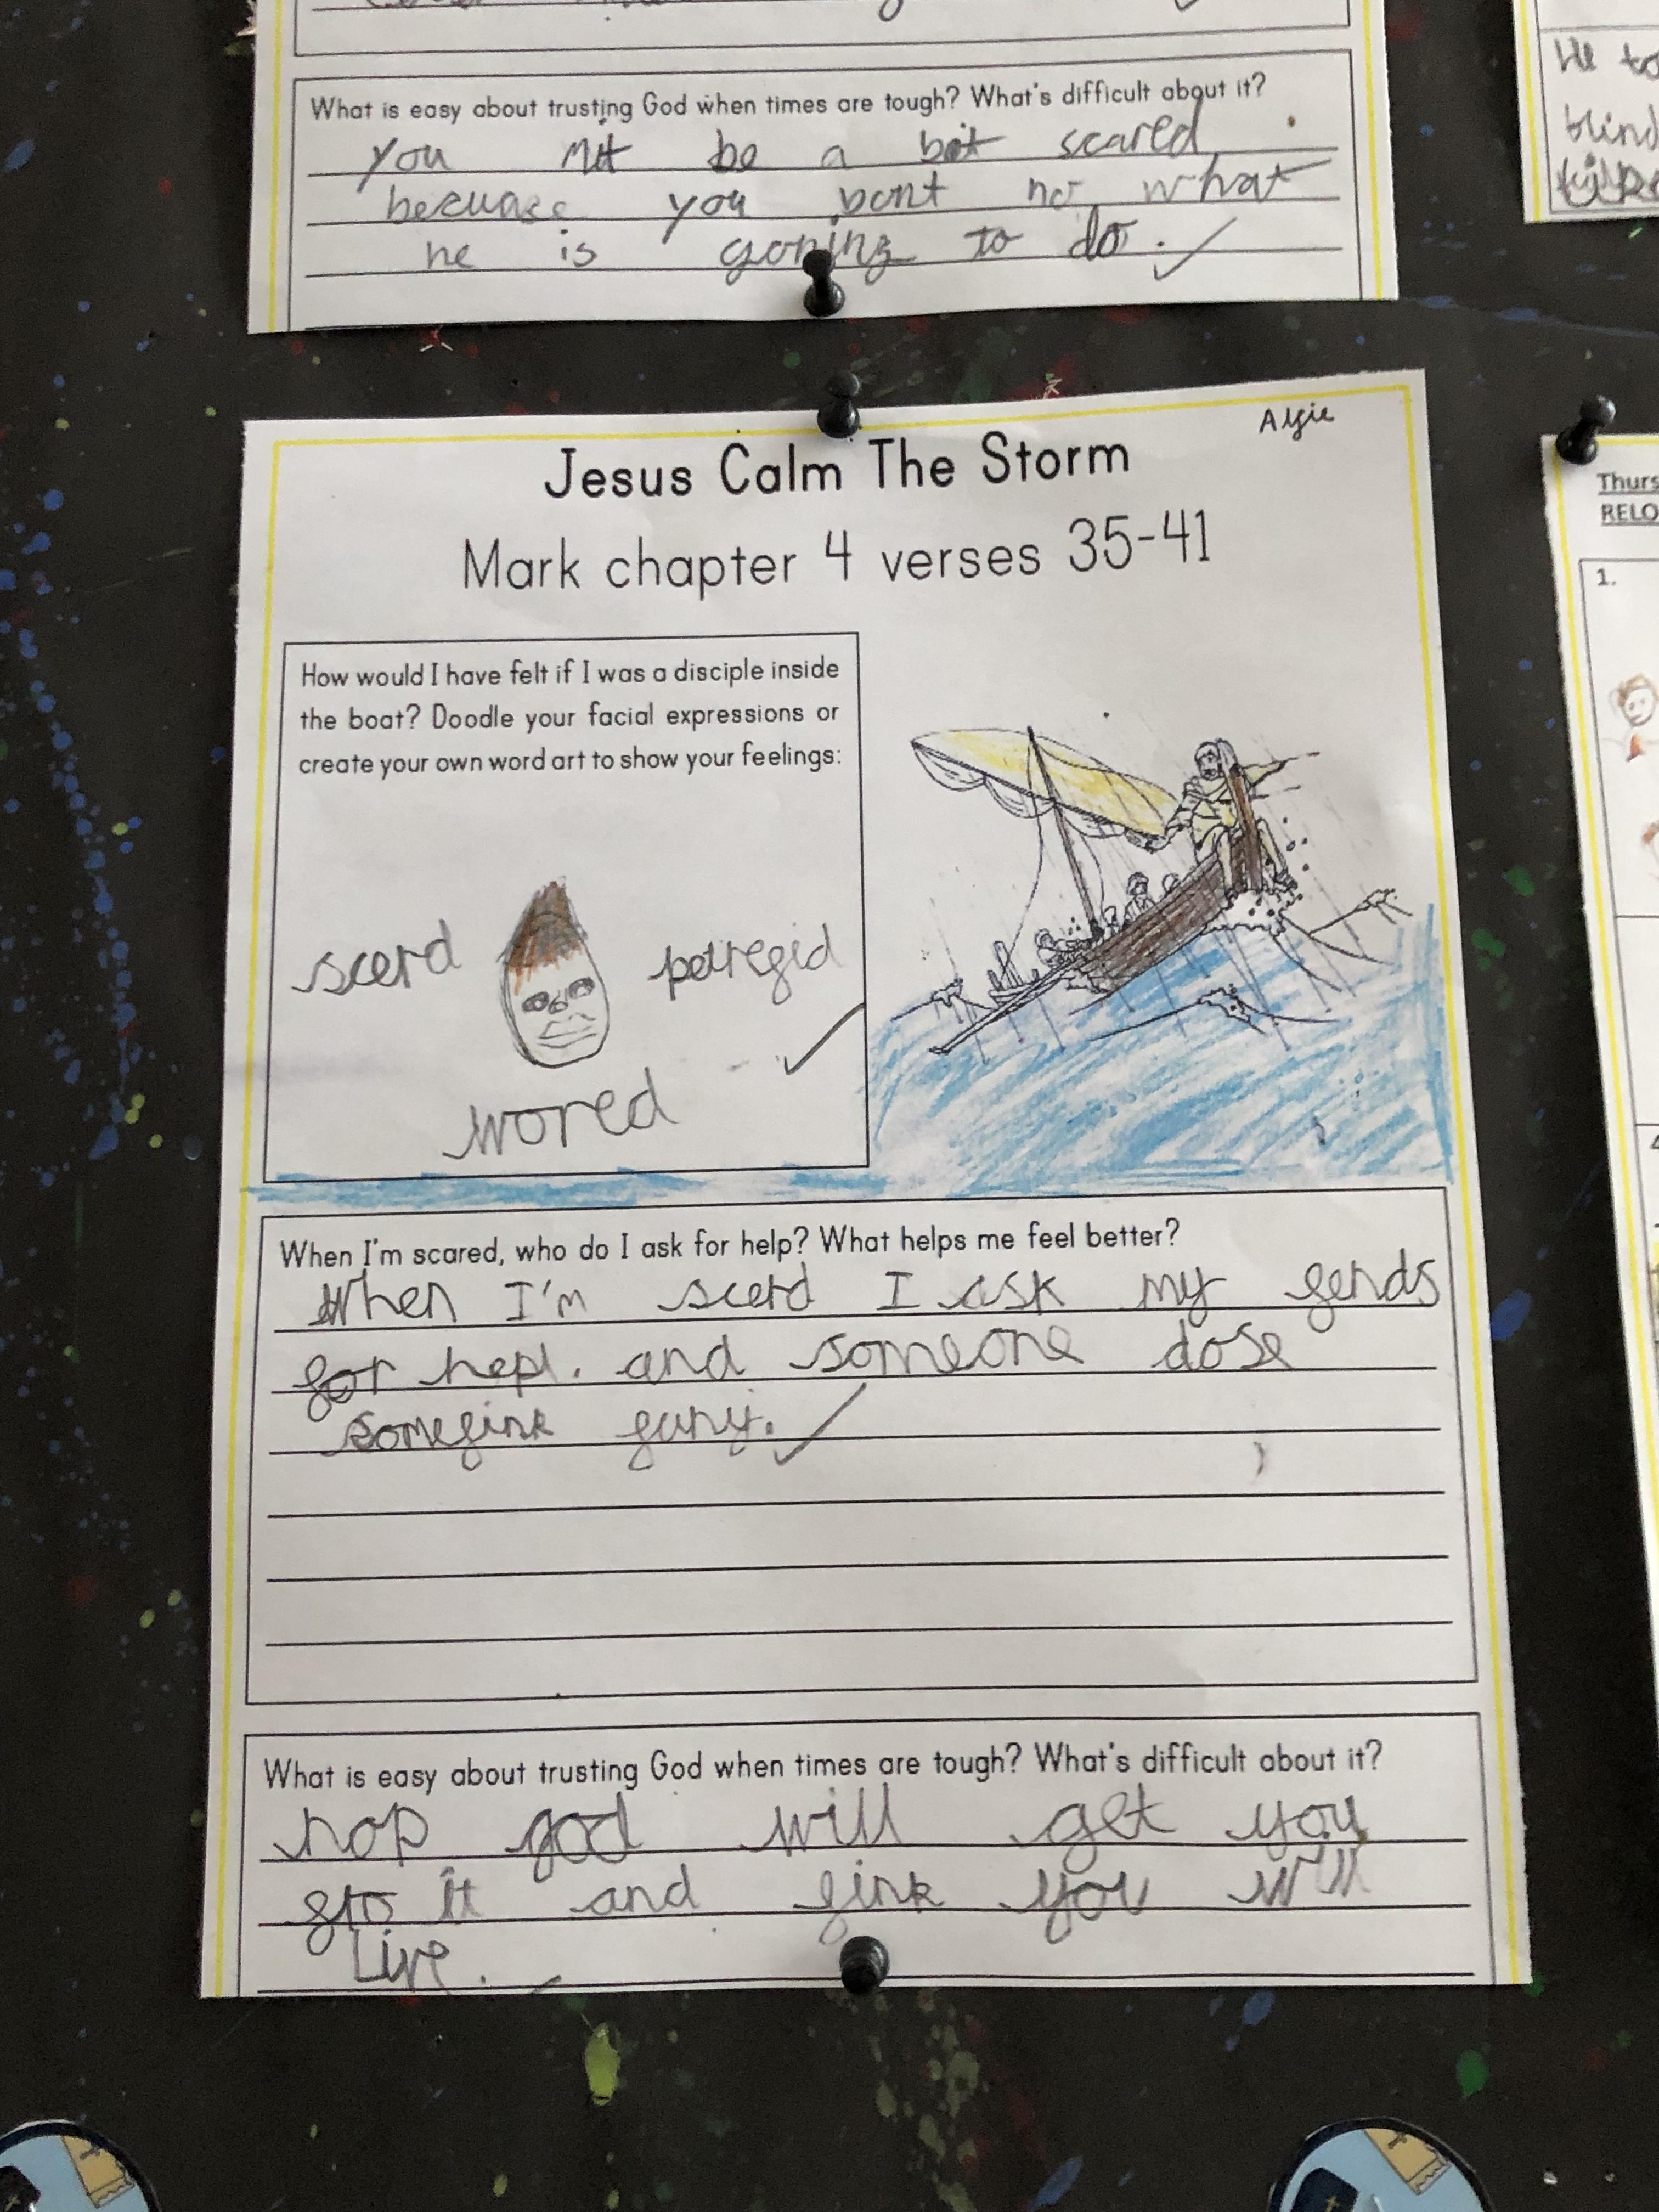 What is easy about trusting God when times are tough? What's difficult about it?
you mit be a bit scared
becuase you dont no what
he is goning to do.
He to
blind
Alfie
Jesus Calm The Storm
Mark chapter 4 verses 35-41
How would I have felt if I was a disciple inside
the boat? Doodle your facial expressions or
create your own word art to show your feelings:
scerd
petregid
wored
When I'm scared, who do I ask for help? What helps me feel better?
When I'm scerd I ask my fends
for hepl. and someone dose
somefink funy.
What is easy about trusting God when times are tough? What's difficult about it?
hop god will get you
fro it and fink you will
Live.
Thurs
RELO
1.